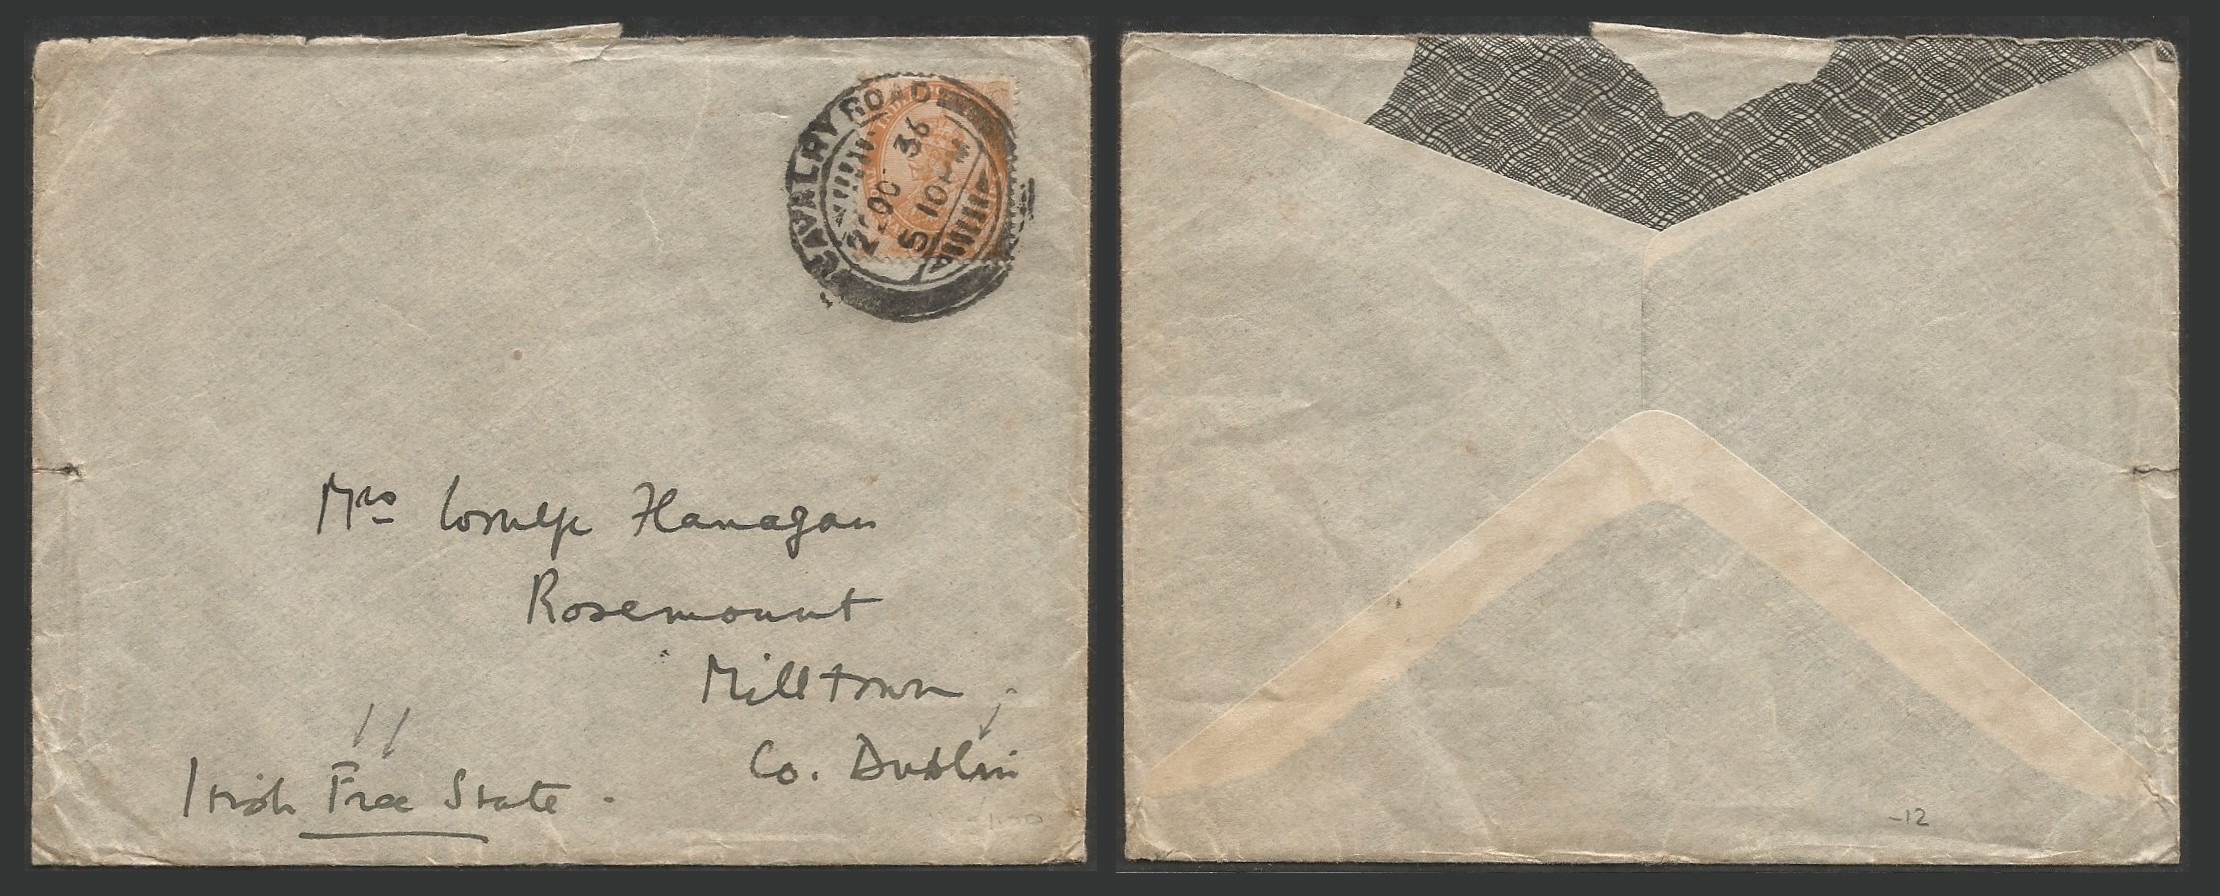 CAVALRY ROAD
2 OC 36
5 10 PM
Mrs Flanagan
Rosemount
Milltown
Co. Dublin
Irish Free State.
-12